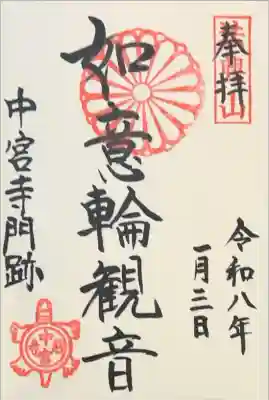 奉拝
令和八年
一月三日
如意輪観音
中宮寺門跡